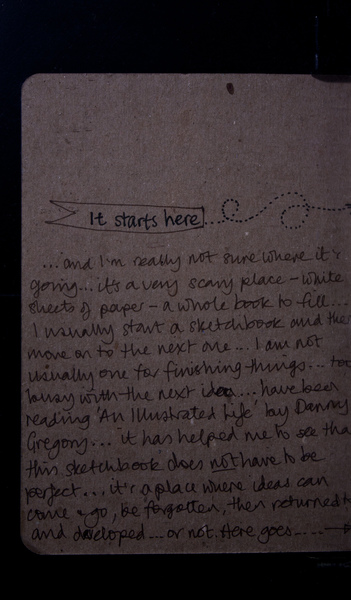 It starts here
...and I'm really not sure where it's
going... it's a very scary place - white
sheets of paper - a whole book to fill...
I usually start a sketchbook and then
move on to the next one... I am not
usually one for finishing things... too
busy with the next idea.... have been
reading 'An Illustrated Life' by Danny
Gregory... it has helped me to see tha
this sketchbook does not have to be
perfect... it's a place where ideas can
come & go, be forgotten, then returned t
and developed... or not. Here goes.....